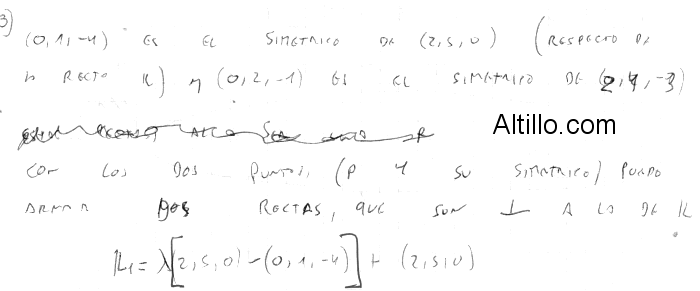 3)
(0,1,-4) ES EL SIMETRICO DE (2,5,0) (RESPECTO DE
LA RECTA IL) Y (0,2,-1) ES EL SIMETRICO DE (2,4,-3)
Altillo.com
CON LOS DOS PUNTOS, (P Y SU SIMETRICO) PUEDO
ARMAR DOS RECTAS, QUE SON ⊥ A LA DE IL
IL1 = λ[2,5,0) - (0,1,-4)] + (2,5,0)